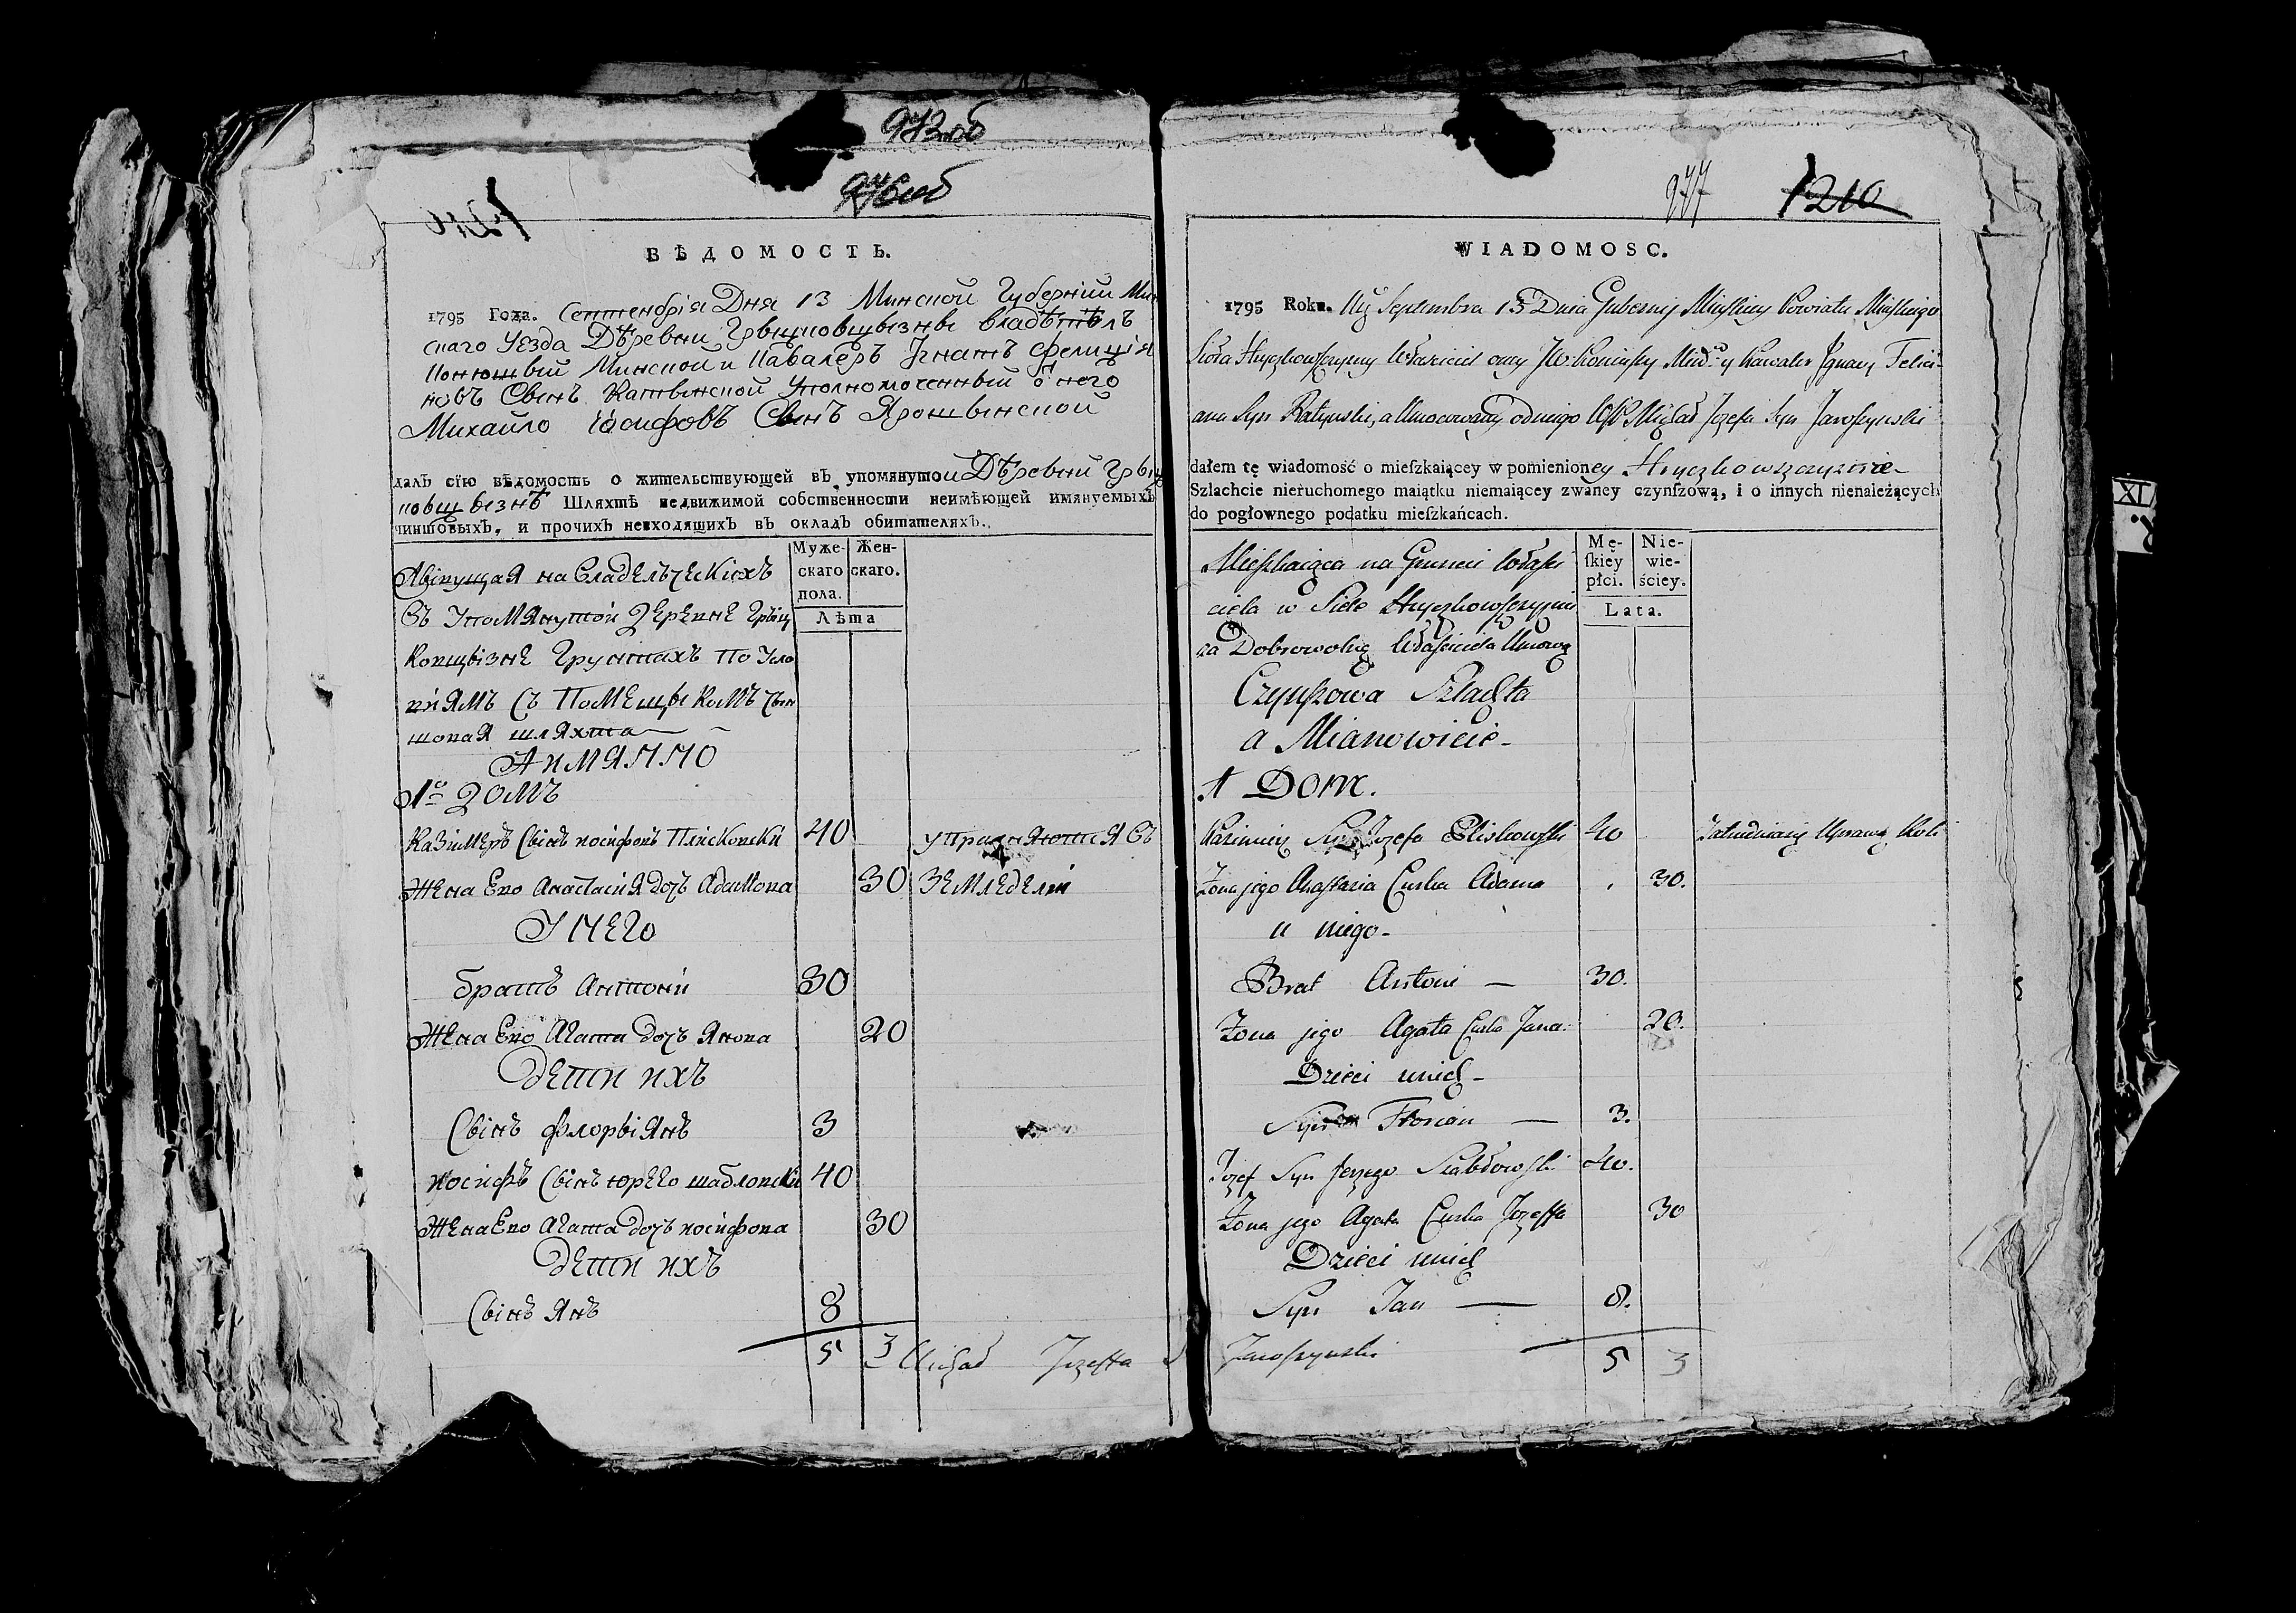 973об
976об
1210
ВѢДОМОСТЬ.
1795 Года. Септенбрія Дня 13 Минской Губерніи Мин
скаго Уезда Дѣревни Грычковщызны владѣтель
Конюшый Минской и Кавалеръ Игнатъ Фелиція
новъ Сынъ Ратынской Уполномоченный о него
Михайло Іосифовъ Сынъ Ярошынской
далъ сїю вѣдомость о жительствующей въ упомянутой Дѣревни Грыч
ковщызнѣ Шляхтѣ недвижимой собственности неимѣющей имянуемыхъ
чиншовыхъ, и прочихъ невходящихъ въ окладъ обитателяхъ.
Муже-
скаго
пола.
Жен-
скаго.
Лѣта
Живущая на Владельческихъ
Въ Упомянутой Деревне Грыч
ковщызне Грунтахъ по Усло
виямъ съ Помещыкомъ Чын
шовая шляхта
А имянно
1о Домъ
Казимеръ Сынъ иосифовъ Плисковски 40 упражняются въ
Жена Ево Анастасия дочъ Адамова 30 Земледелии
У него
братъ Антони 30
Жена Ево Агата дочъ Янова 20
дети ихъ
Сынъ Флорыянъ 3
иосифъ Сынъ юрего шабловски 40
Жена Ево Агата дочъ иосифова 30
дети ихъ
Сынъ Янъ 8
5 3 Michał Jozeffa S
977 1210
WIADOMOSC.
1795 Roku. Mca Septembra 13 Dnia Gubernij Minskiey Powiatu Minskiego
Sioła Hryczkowszczyzny Właściciel oney JW Koniuszy Min. y Kawaler Ignacy Felici-
ana Syn Ratynski, a Umocowany od niego Michał Jozefa Syn Jaroszynski
dałem tę wiadomość o mieſzkaiącey w pomienioney Hryczkowszczyznie
Szlachcie nieruchomego maiątku niemaiącey zwaney czynſzową, i o innych nienależących
do pogłownego podatku mieſzkańcach.
Mę-
ſkiey
płci.
Nie-
wie-
ściey.
Lata.
Mieszkaiąca na Gruncie Właści
ciela w Siele Hryczkowszczyznie
za Dobrowolną Właściciela Umową
Czynszowa Szlachta
a Mianowicie
1 Dom.
Kazimierz Syn Jozefa Pliskowski 40 Zatrudniaią Uprawą Roli
Żona jego Anastazia Curka Adama 30.
u niego
Brat Antoni 30.
Żona jego Agata Curka Jana 20.
Dzieci unich
Syn Florian 3.
Jozef Syn Jerzego Szabłowski 40.
Żona jego Agata Curka Jozeffa 30
Dzieci unich
Syn Jan 8.
Jaroszynski 5 3
XI